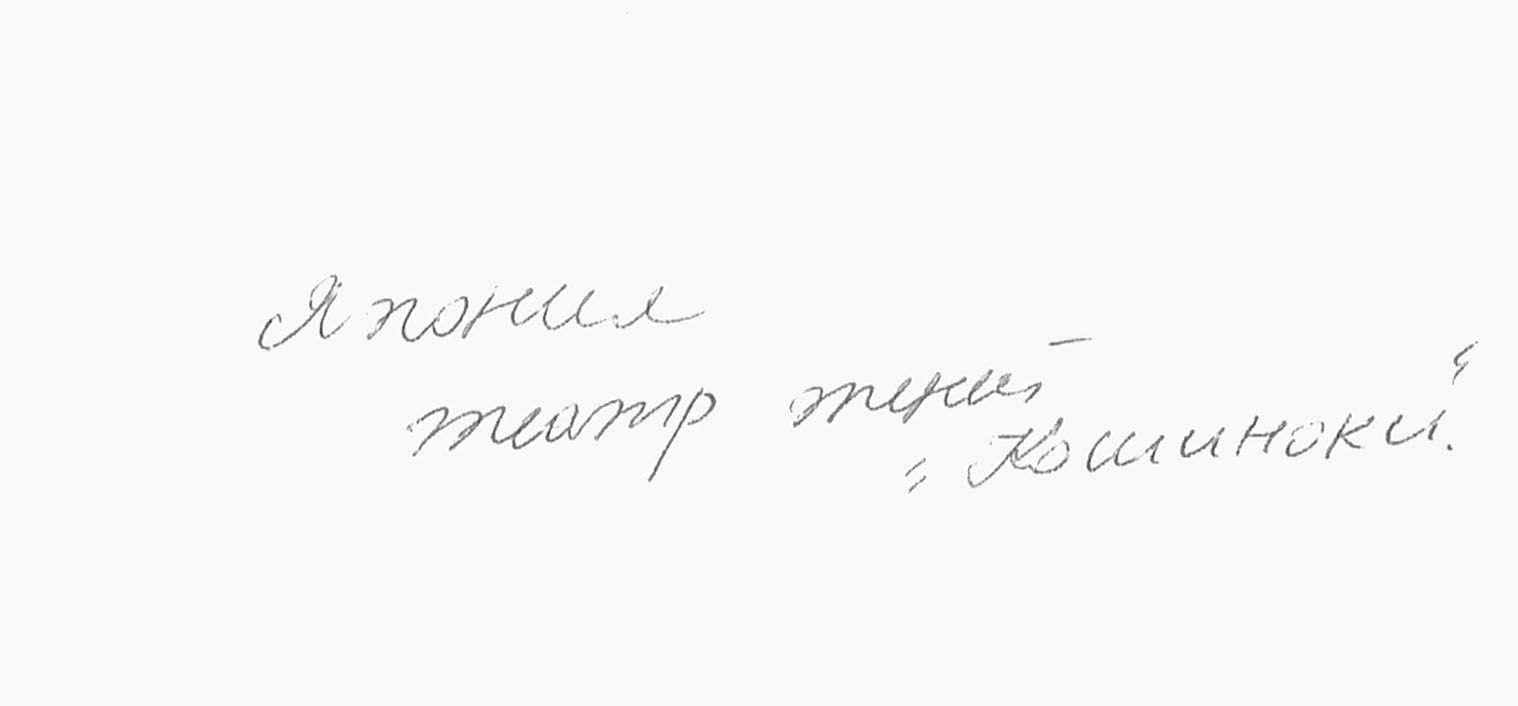 Япония
театр теней
„Кошиноки“.